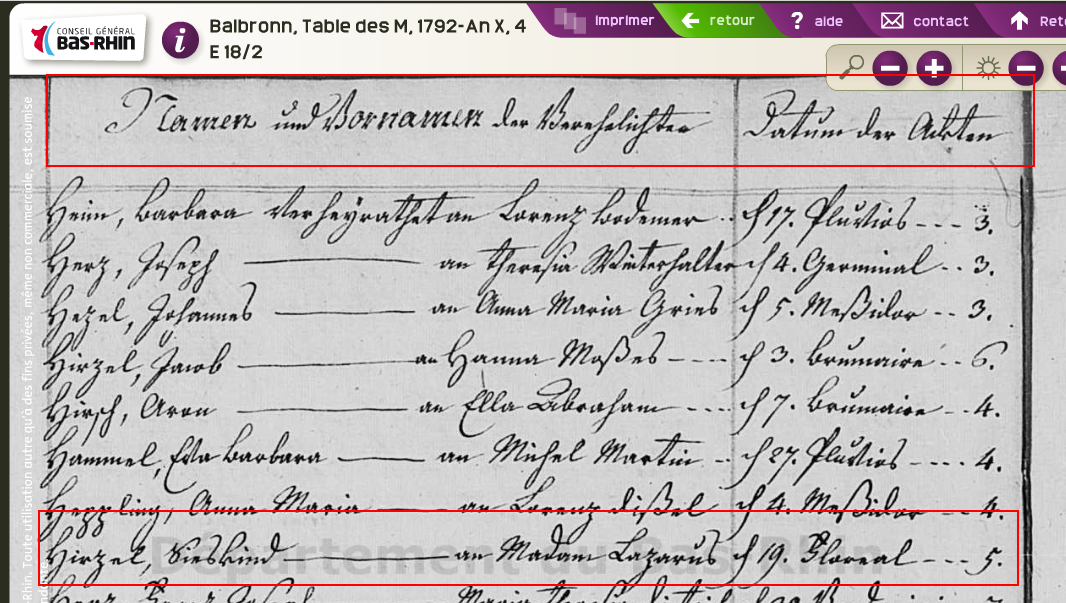 CONSEIL GÉNÉRAL
BAS-RHIN
i
Balbronn, Table des M, 1792-An X, 4
E 18/2
imprimer
retour
? aide
contact
Reto
-Rhin. Toute utilisation autre qu'à des fins privées, même non commerciale, est soumise
Namen und Vornamen der Verehelichten Datum der Ackten
Heim, Barbara verheyrathet an Lorenz Bodemer .. d 17. Pluvios --- 3.
Herz, Joseph — an Theresia Winterhalter d 4. Germinal -. 3.
Hezel, Johannes — an Anna Maria Gries d 5. Meßidor -- 3.
Hirzel, Jacob — an Hanna Moßes ---- d 3. Brumaire -- 6.
Hirsch, Aron — an Ella Abraham --- d 7. Brumaire -- 4.
Hammel, Eva Barbara — an Michel Martin -- d 27. Pluvios --- 4.
Heppling, Anna Maria — an Lorenz dißel d 4. Meßidor -- 4.
Hirzel, Sieskind — an Madam Lazarus d 19. Floreal --- 5.
Département du Bas-Rhin